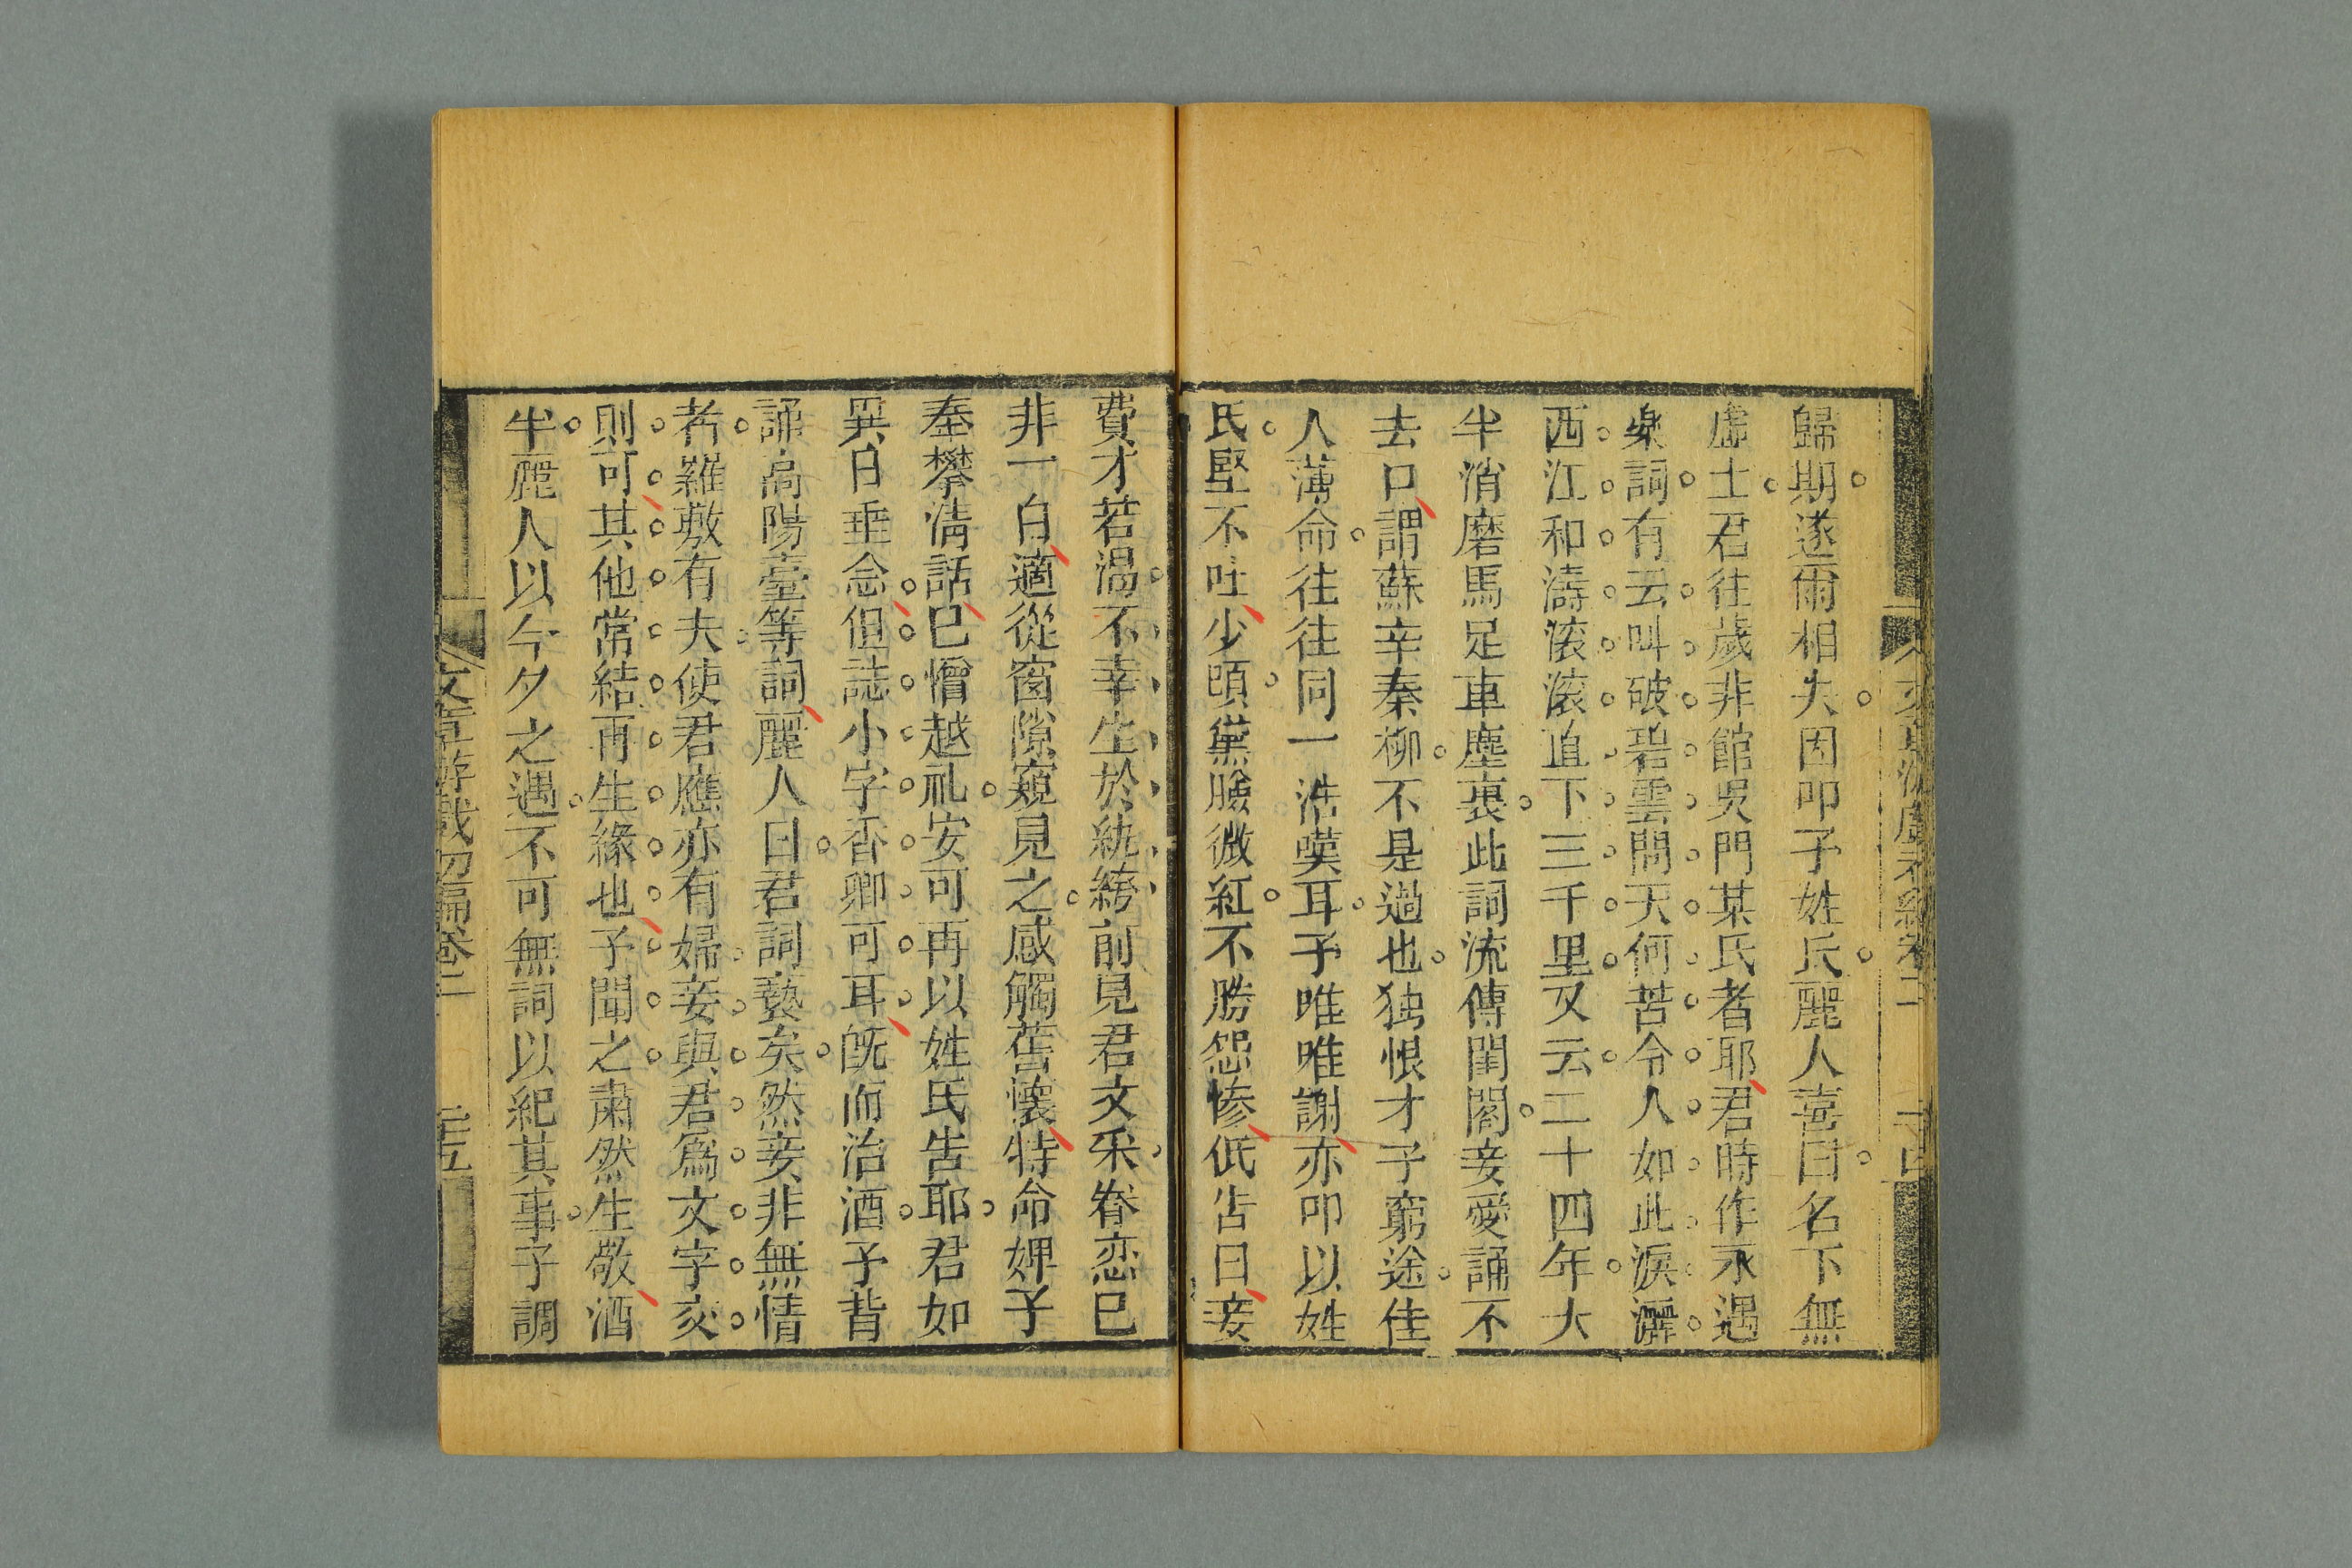 歸期遂爾相失因叩子姓氏麗人喜曰名下無
虛士君往歲非館吳門某氏者耶君時作永遇
樂詞有云叫破碧雲問天何苦令人如此淚灑
西江和濤滚滚直下三千里又云二十四年大
半消磨馬足車塵裏此詞流傳閨閣妾愛誦不
去口謂蘇辛秦柳不是過也独恨才子窮途佳
人薄命往往同一浩嘆耳予唯唯謝亦叩以姓
氏堅不吐少頃黛臉微紅不勝怨慘低告曰妾
費才若渴不幸生於紈絝前見君文采眷恋已
非一日適從窗隙窺見之感觸舊懷特命婢子
奉攀清話已懵越礼安可再以姓氏告耶君如
異日垂念但誌小字香卿可耳既而治酒予背
誦高陽臺等詞麗人曰君詞褻矣然妾非無情
者羅敷有夫使君應亦有婦妾與君爲文字交
則可其他常結再生緣也予聞之肅然生敬酒
半麗人以今夕之遇不可無詞以紀其事予調
文章游戲初編卷二 二十五